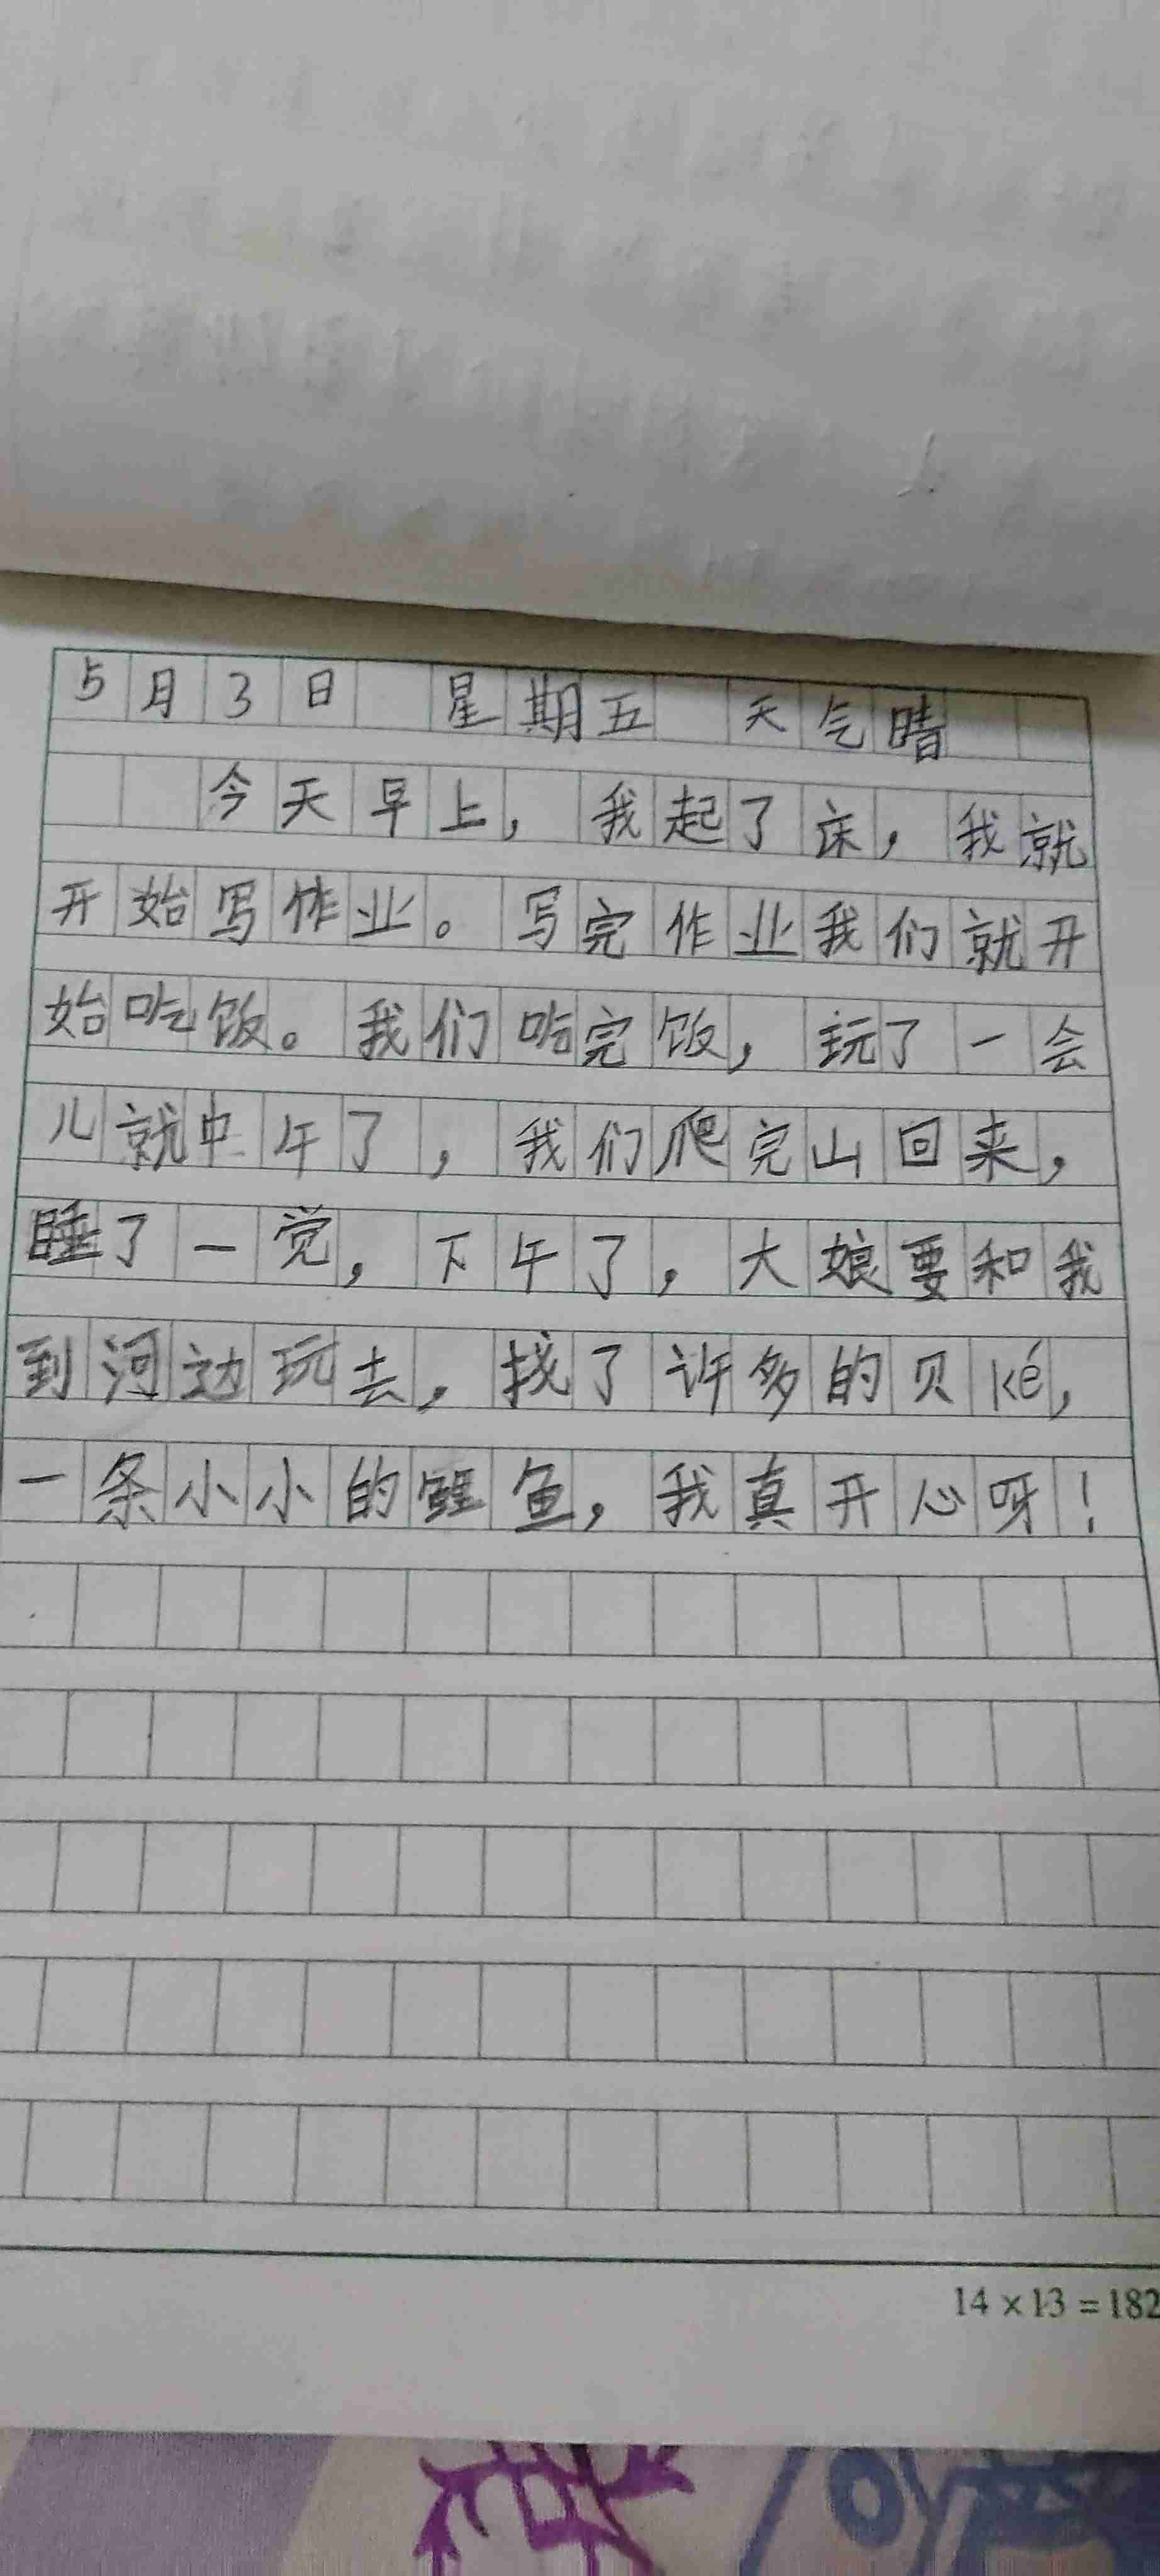 5月3日 星期五 天气晴
今天早上，我起了床，我就
开始写作业。写完作业我们就开
始吃饭。我们吃完饭，玩了一会
儿就中午了，我们爬完山回来，
睡了一觉，下午了，大娘要和我
到河边玩去，找了许多的贝ké，
一条小小的鲤鱼，我真开心呀！
14×13=182